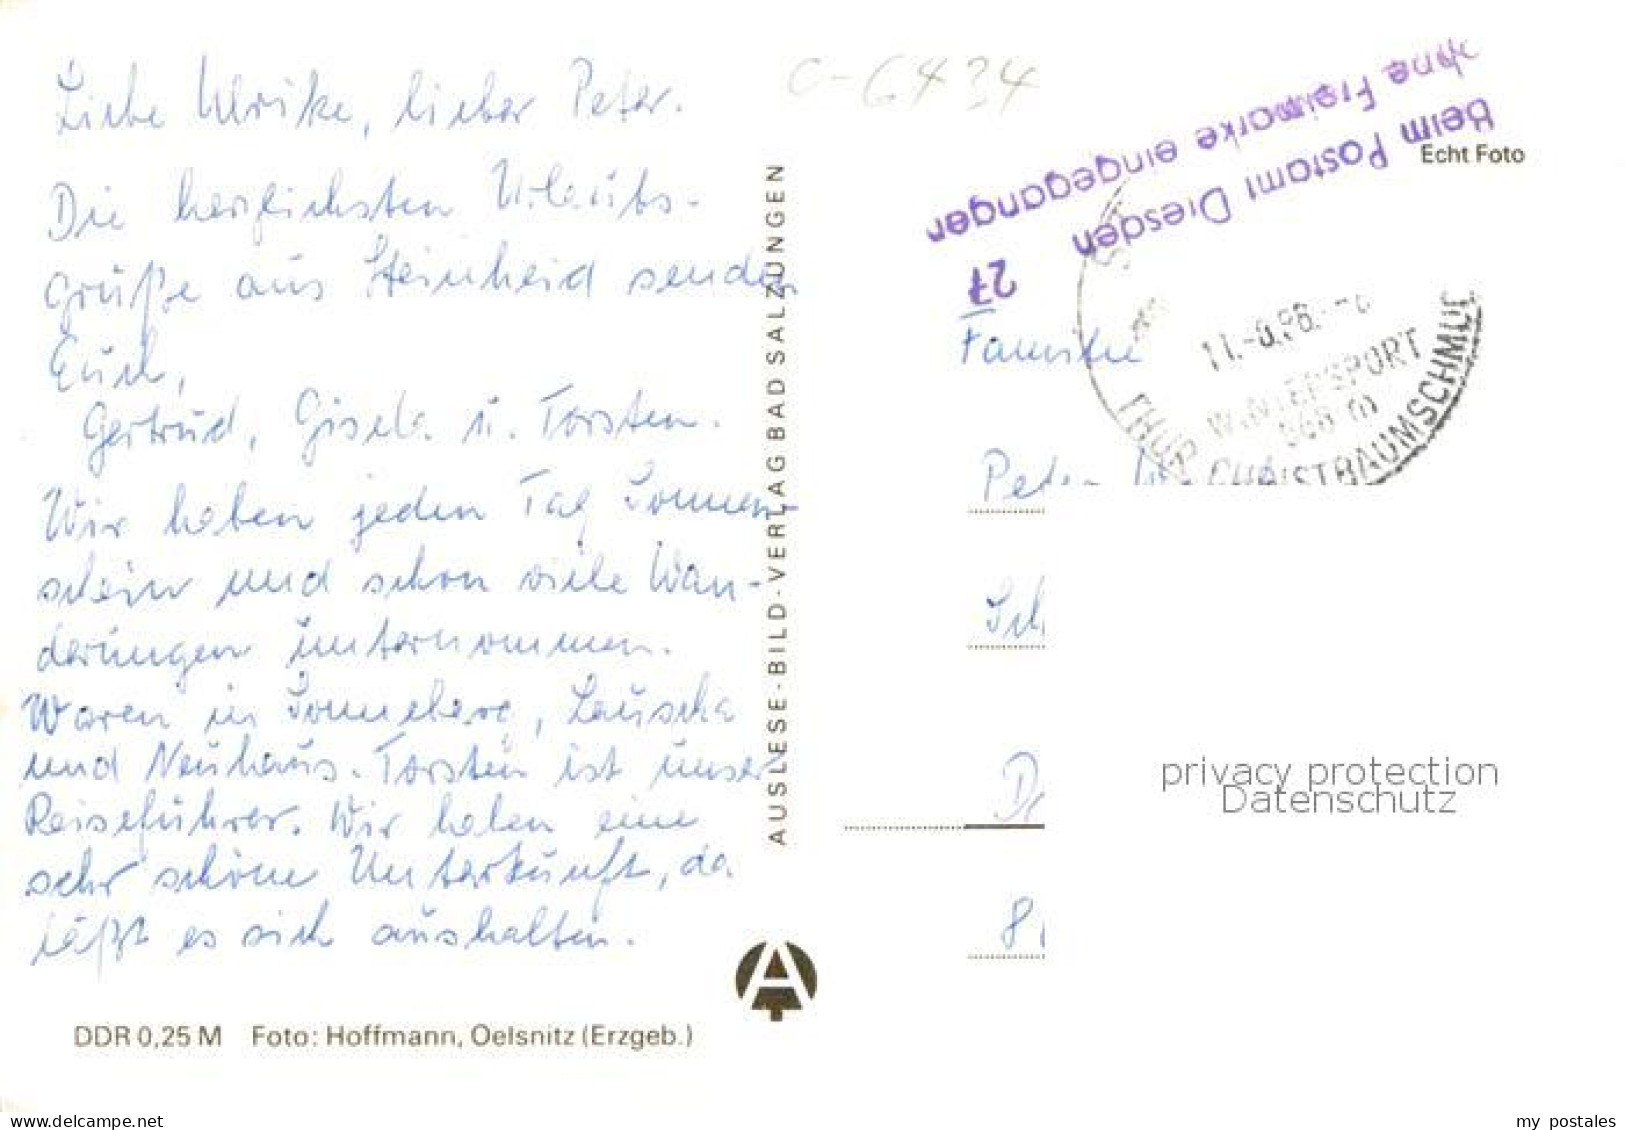 Liebe Ulrike, lieber Peter.
Die herzlichsten Urlaubs-
grüße aus Steinheid senden
Euch,
Gertrud, Gisela u. Torsten.
Wir haben jeden Tag Sonnen-
schein und schon viele Wan-
derungen unternommen.
Waren in Sonneberg, Lauscha
und Neuhaus. Torsten ist unser
Reiseführer. Wir haben eine
sehr schöne Unterkunft, da
läßt es sich aushalten.
DDR 0,25 M Foto: Hoffmann, Oelsnitz (Erzgeb.)
AUSLESE-BILD-VERLAG BAD SALZUNGEN
A
C-6434
Beim Postamt Dresden
ohne Freimarke eingegangen
27
Echt Foto
WINTERSPORT
CHRISTBAUMSCHMUC
Familie
Peter
Sch
8
privacy protection
Datenschutz
delcampe.net
my_postales